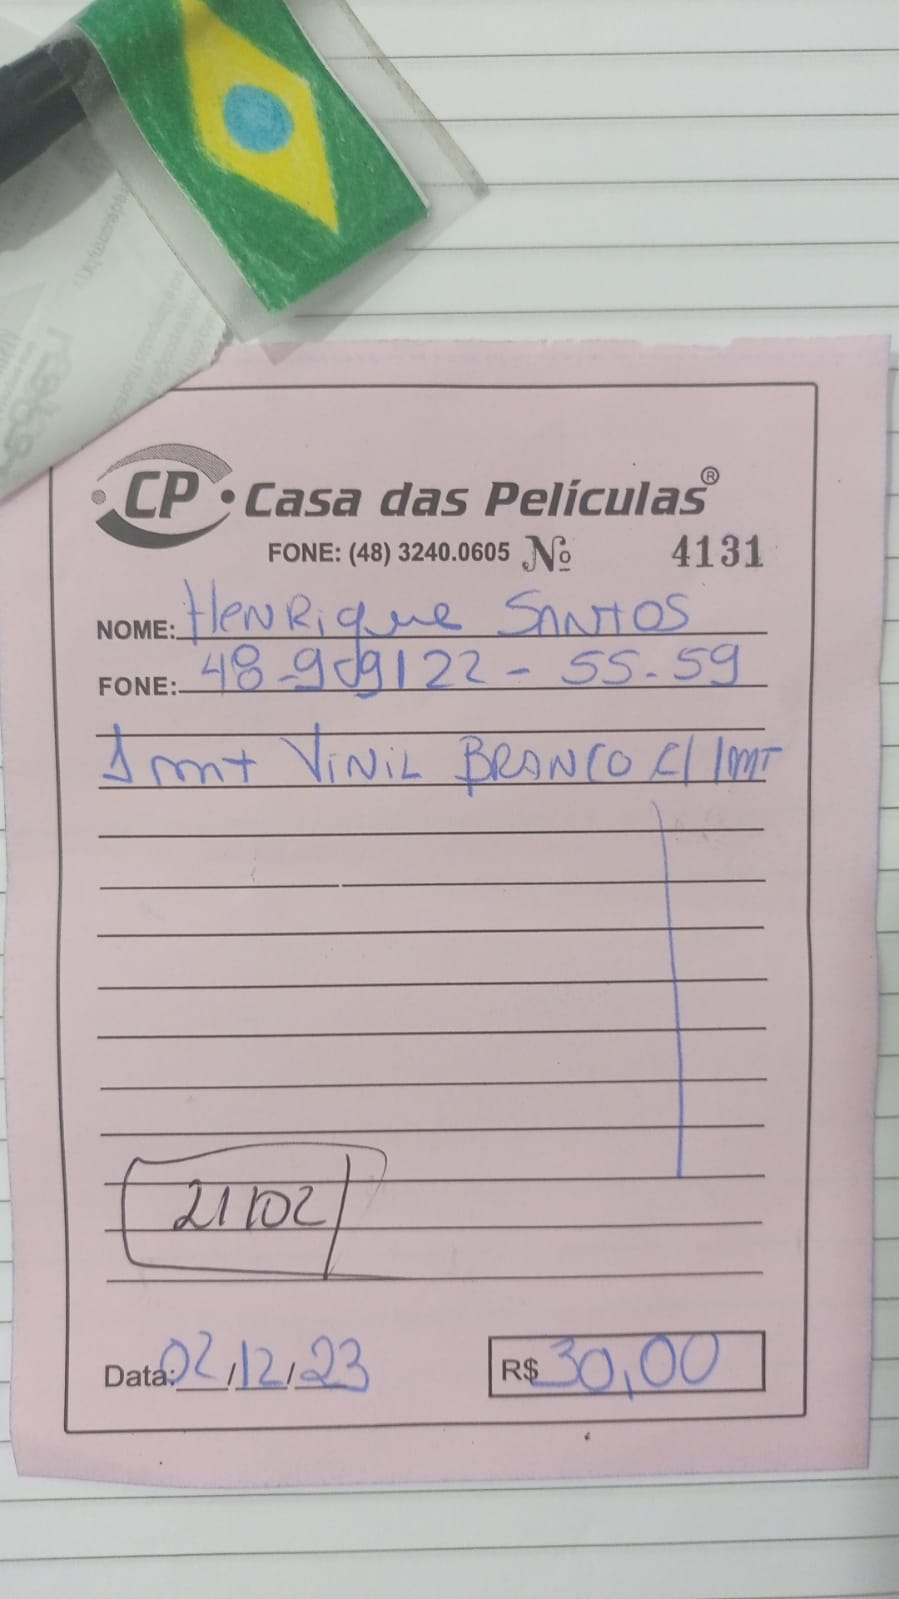 CP Casa das Películas®
FONE: (48) 3240.0605 Nº 4131
NOME: Henrique SANTOS
FONE: 48-99122-55-59
1 mt VINIL BRANCO C/ 1MT
21/02
Data: 02/12/23 R$ 30,00